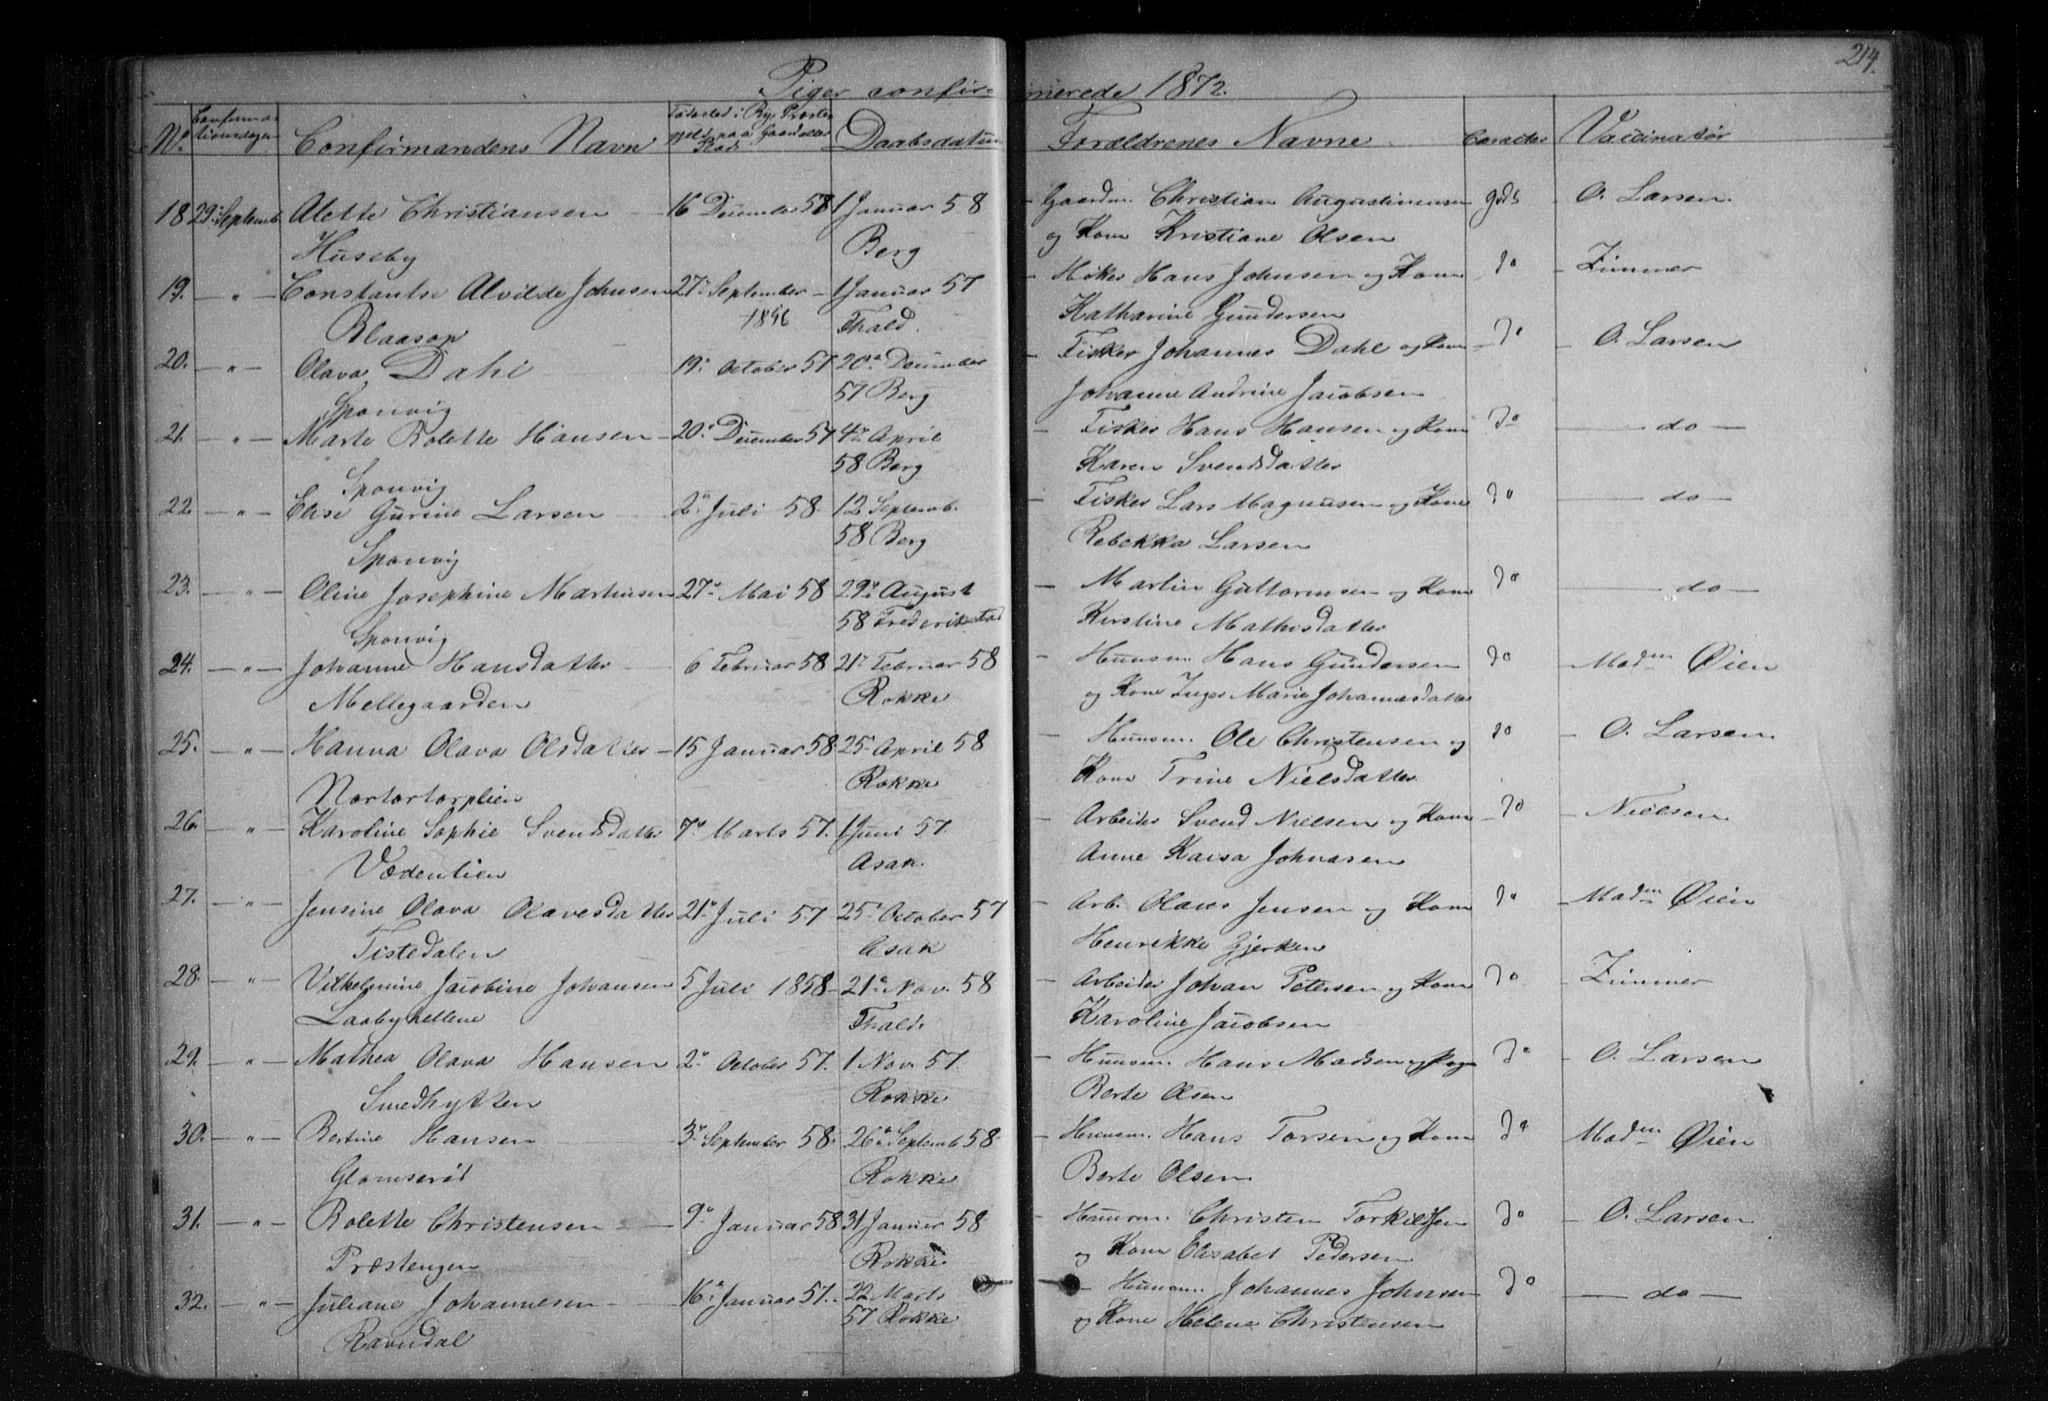 214.
Piger confirmerede 1872.
No. Confirmationsdagen Confirmandens Navn Fødested i By, Præstegjeld paa Gaard eller Daabsdatum Forældrenes Navne Caracter Vaccinatør
18 29. Septemb Alette Christiansen 16 December 58 1 Januar 58 Gaardm. Christian Augustinensen godt O. Larsen.
Huseby Berg og Kone Kristiane Olsen
19. " Constantse Alvilde Johnsen 27. September 1 Januar 57 Høker Hans Johnsen og Kone do Zimmer
Blaasop 1856 Fhald. Katharine Gundersen
20. " Olava Dahl 19. October 57 20. December Fisker Johannes Dahl og Kone do O. Larsen
Sponvig 57 Berg Johanne Andrine Jacobsen
21. " Marte Bolette Hansen 20. December 57 4. April Fisker Hans Hansen og Kone do do
Sponvig 58 Berg Karen Svendsdatter
22 " Elise Gurine Larsen 2. Juli 58 12 Septemb. Fisker Lars Magnusen og Kone do do
Sponvig 58 Berg Rebekka Larsen
23. " Oline Josephine Martinsen 27. Mai 58 29. August Martin Guttormsen og Kone do do
Sponvig 58 Frederikstad Kirstine Mathisdatter
24. " Johanne Hansdatter 6 Februar 58 21. Februar 58 Huusm. Hans Gundersen do Madm Øien
Mellegaarden Rokke og Kone Inger Marie Johannesdatter
25. " Hanna Olava Olsdatter 15 Januar 58 25. April 58 Huusm. Ole Christensen og do O. Larsen.
Rokke Kone Trine Nielsdatter
26. " Karoline Sophie Svendsdatter 7. Marts 57. 1 Juni 57. Arbeider Svend Nielsen og Kone do Nielsen
Vedenlien Asak. Anne Kaisa Johnasen
27. " Jensine Olava Olavesdatter 21. Juli 57 25. October 57 Arb. Olaves Jensen og Kone do Madm Øien
Tistedalen Asak Henrikke Gjerken
28. " Vilhelmine Jacobine Johansen 5 Juli 1858 21. Nov. 58 Arbeider Johan Petersen og Kone do Zimmer
Laabyhellene Fhald. Karoline Jacobsen
29. " Mathea Olava Hansen 2. October 57. 1 Nov. 57. Huusm. Hans Madsen og do O. Larsen
Smedhytten Rokke Berte Olsen
30. " Bertine Hansen 3. September 58. 26. Septemb 58. Huusm. Hans Torsen og Kone do Madm Øien
Glomserød Rokke Berte Olsen
31. " Bolette Christensen 9. Januar 58 31 Januar 58 Huusm. Christen Torkilsen do O. Larsen
Præstengen Rokke og Kone Elisabet Pedersen
32. " Juliane Johannesen 16. Januar 57. 22 Marts Huusm. Johannes Johnsen do do
Ravndal 57 Rokke og Kone Helene Christensen